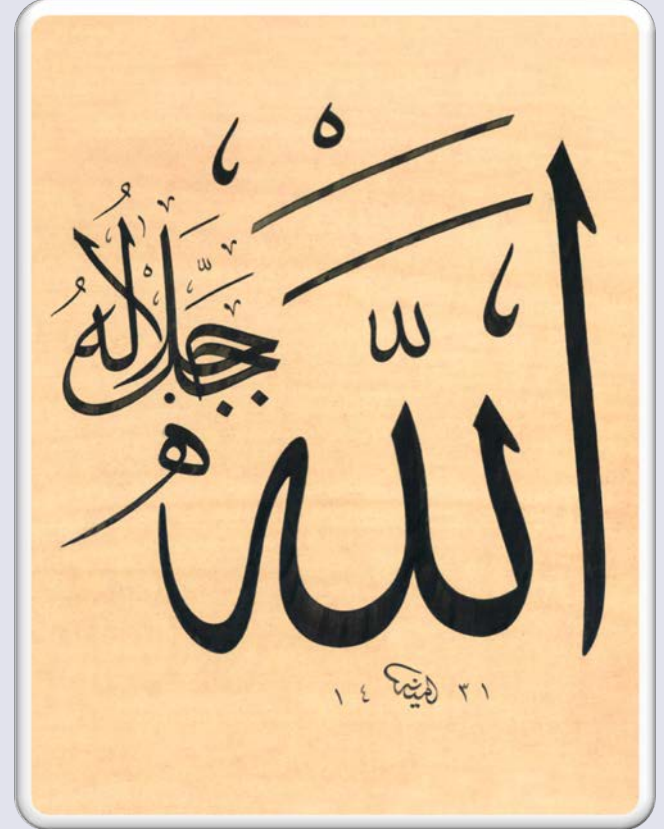 الله
جل جلاله
١٤٣١